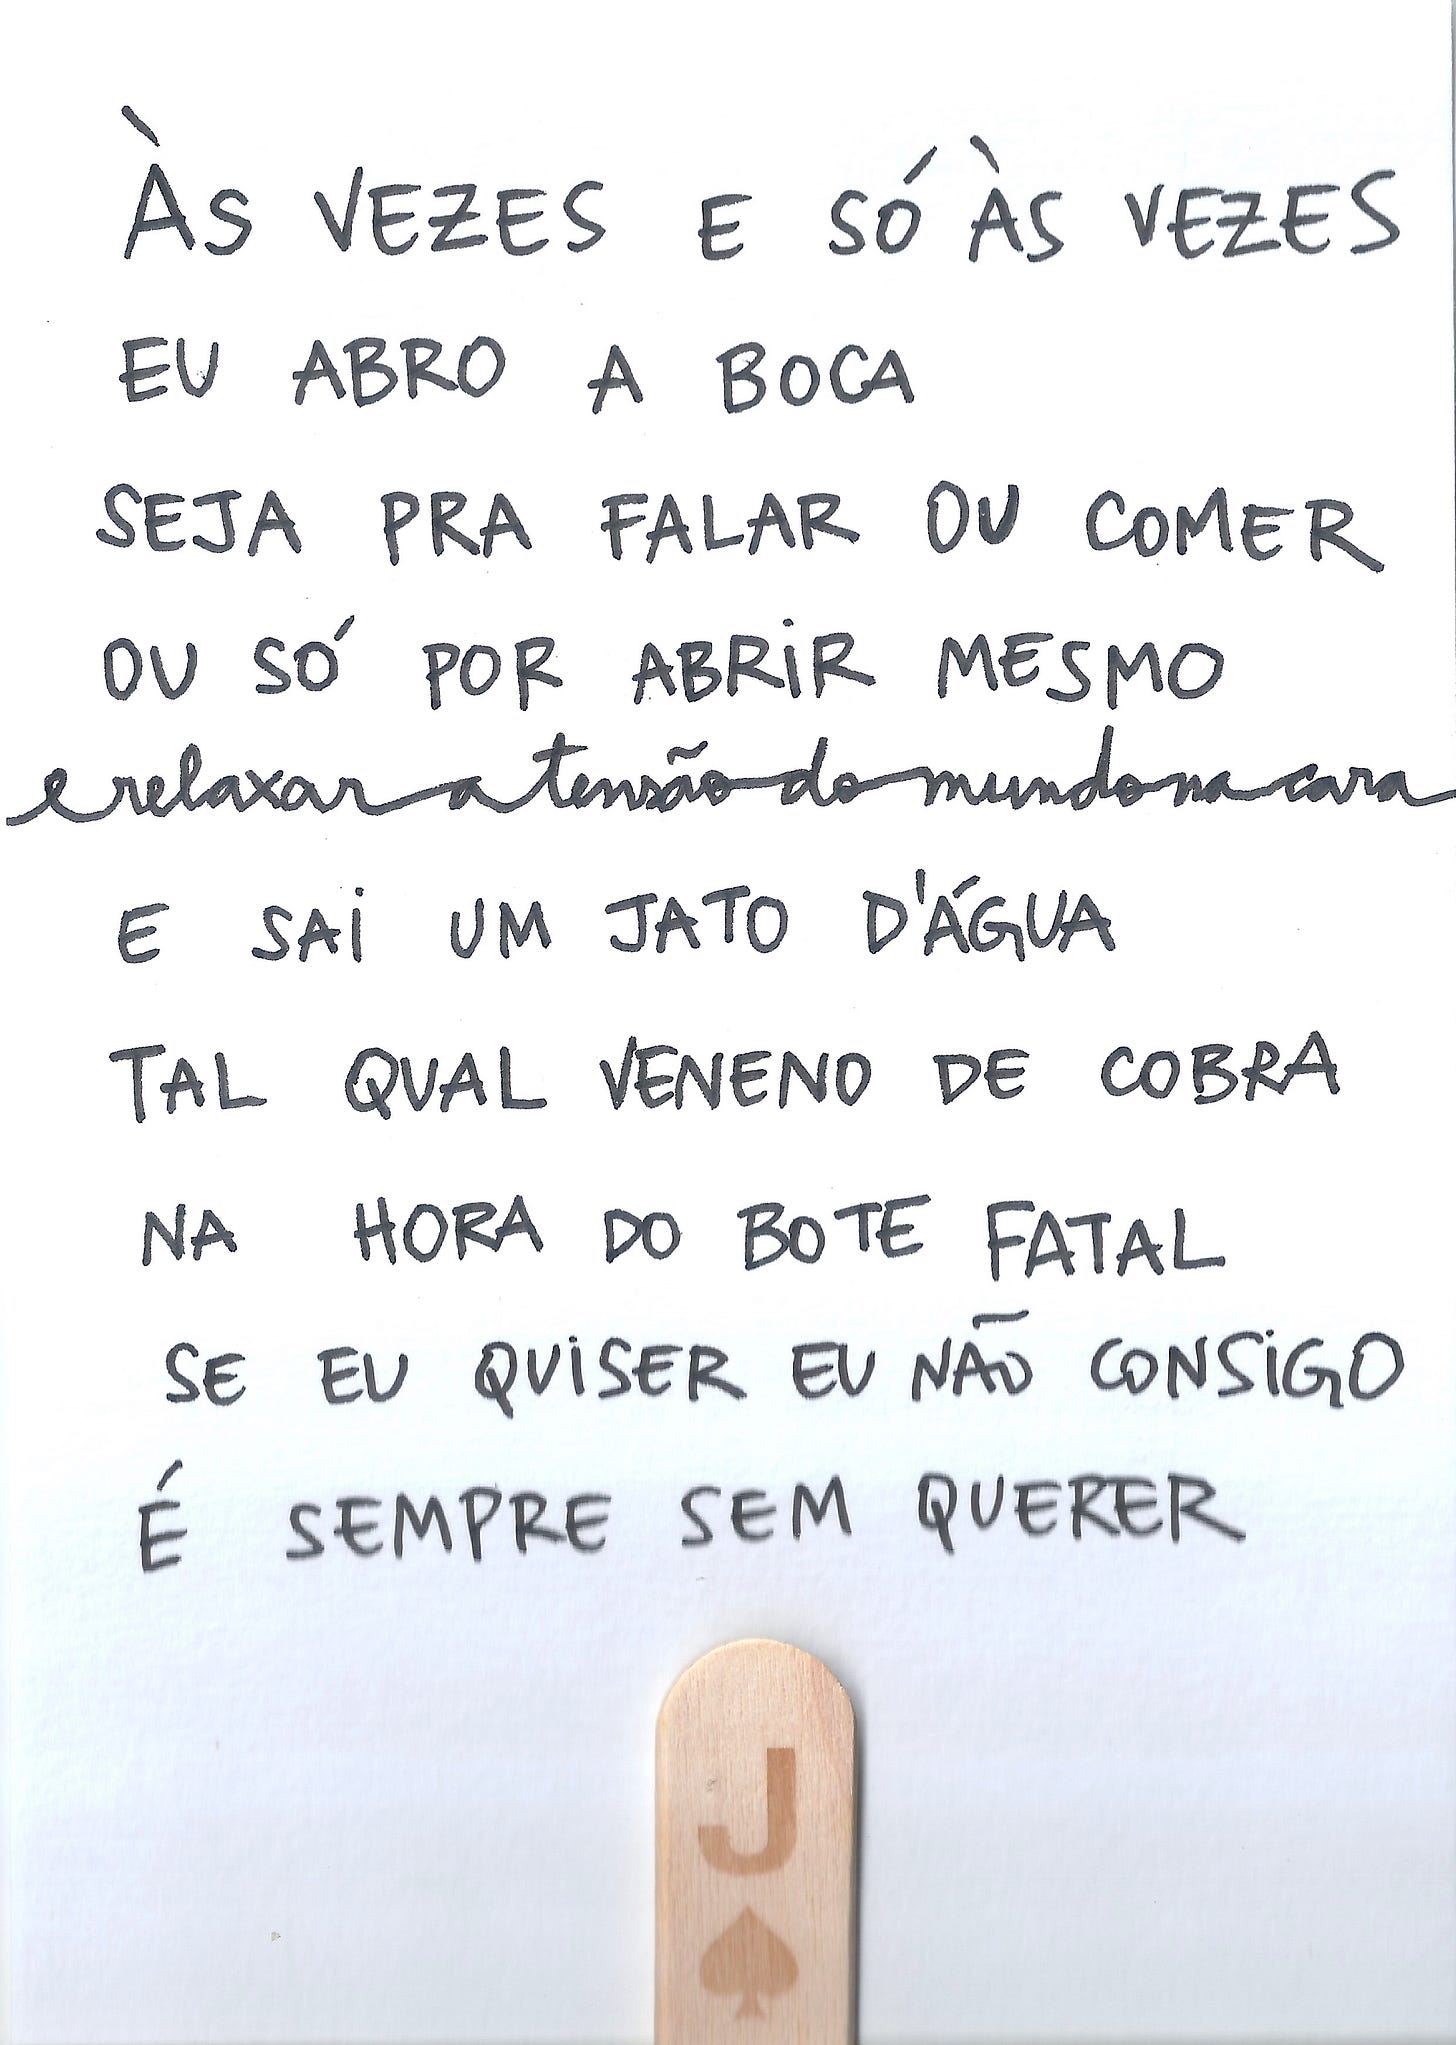 ÀS VEZES E SÓ ÀS VEZES
EU ABRO A BOCA
SEJA PRA FALAR OU COMER
OU SÓ POR ABRIR MESMO
e relaxar a tensão do mundo na cara
E SAI UM JATO D'ÁGUA
TAL QUAL VENENO DE COBRA
NA HORA DO BOTE FATAL
SE EU QUISER EU NÃO CONSIGO
É SEMPRE SEM QUERER
J